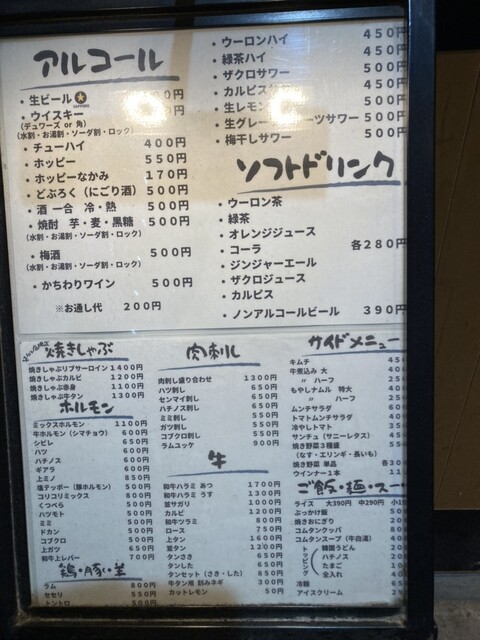 アルコール
・生ビール
・ウイスキー
(デュワーズ or 角)
(水割・お湯割・ソーダ割・ロック)
・チューハイ 400円
・ホッピー 550円
・ホッピーなかみ 170円
・どぶろく(にごり酒) 500円
・酒 一合 冷・熱 500円
・焼酎 芋・麦・黒糖 500円
(水割・お湯割・ソーダ割・ロック)
・梅酒 500円
(水割・お湯割・ソーダ割・ロック)
・かちわりワイン 500円
※お通し代 200円
・ウーロンハイ 450円
・緑茶ハイ 450円
・ザクロサワー 500円
・カルピスサワー 450円
・生レモン 500円
・生グレープフルーツサワー 500円
・梅干しサワー 500円
ソフトドリンク
・ウーロン茶
・緑茶
・オレンジジュース
・コーラ 各280円
・ジンジャーエール
・ザクロジュース
・カルピス
・ノンアルコールビール 390円
焼きしゃぶ
焼きしゃぶリブサーロイン 1400円
焼きしゃぶカルビ 1200円
焼きしゃぶ赤身 1100円
焼きしゃぶ牛タン 1300円
ホルモン
ミックスホルモン 1100円
牛ホルモン(シマチョウ) 600円
シビレ 650円
ハツ 600円
ハチノス 600円
ギアラ 600円
上ミノ 850円
塩テッポー(豚ホルモン) 500円
コリコリミックス 800円
くつべら 500円
ハツモト 500円
ミミ 500円
ドカン 500円
コブクロ 500円
上ガツ 650円
和牛上レバー 700円
鶏・豚・羊
ラム 800円
セセリ 550円
トントロ
肉刺し
肉刺し盛り合わせ 1300円
ハツ刺し 650円
センマイ刺し 650円
ハチノス刺し 650円
ミミ刺し 550円
ガツ刺し 550円
コブクロ刺し 550円
ラムユッケ 900円
牛
和牛ハラミ あつ 1700円
和牛ハラミ うす 1300円
並サガリ 1000円
カルビ 1200円
和牛ツラミ 800円
ロース 750円
上タン 1600円
並タン 1200円
タンさき 650円
タンした 650円
タンセット(さき・した) 850円
牛タン用 刻みネギ 300円
カットレモン 50円
サイドメニュー
キムチ
牛煮込み 大
〃 ハーフ
もやしナムル 特大
〃 ハーフ
ムンチサラダ
トマトムンチサラダ
冷やしトマト
サンチュ(サニーレタス)
焼き野菜3種盛
(なす・エリンギ・長いも)
焼き野菜 単品 各30
ウインナー1本
ご飯・麺・スー
ライス 大390円 中290円 小
ぶっかけ飯
焼きおにぎり
コムタンクッパ
コムタンスープ(牛白湯)
トッピング
韓国うどん
ハチノス
たまご
全入れ
冷麺
アイスクリーム